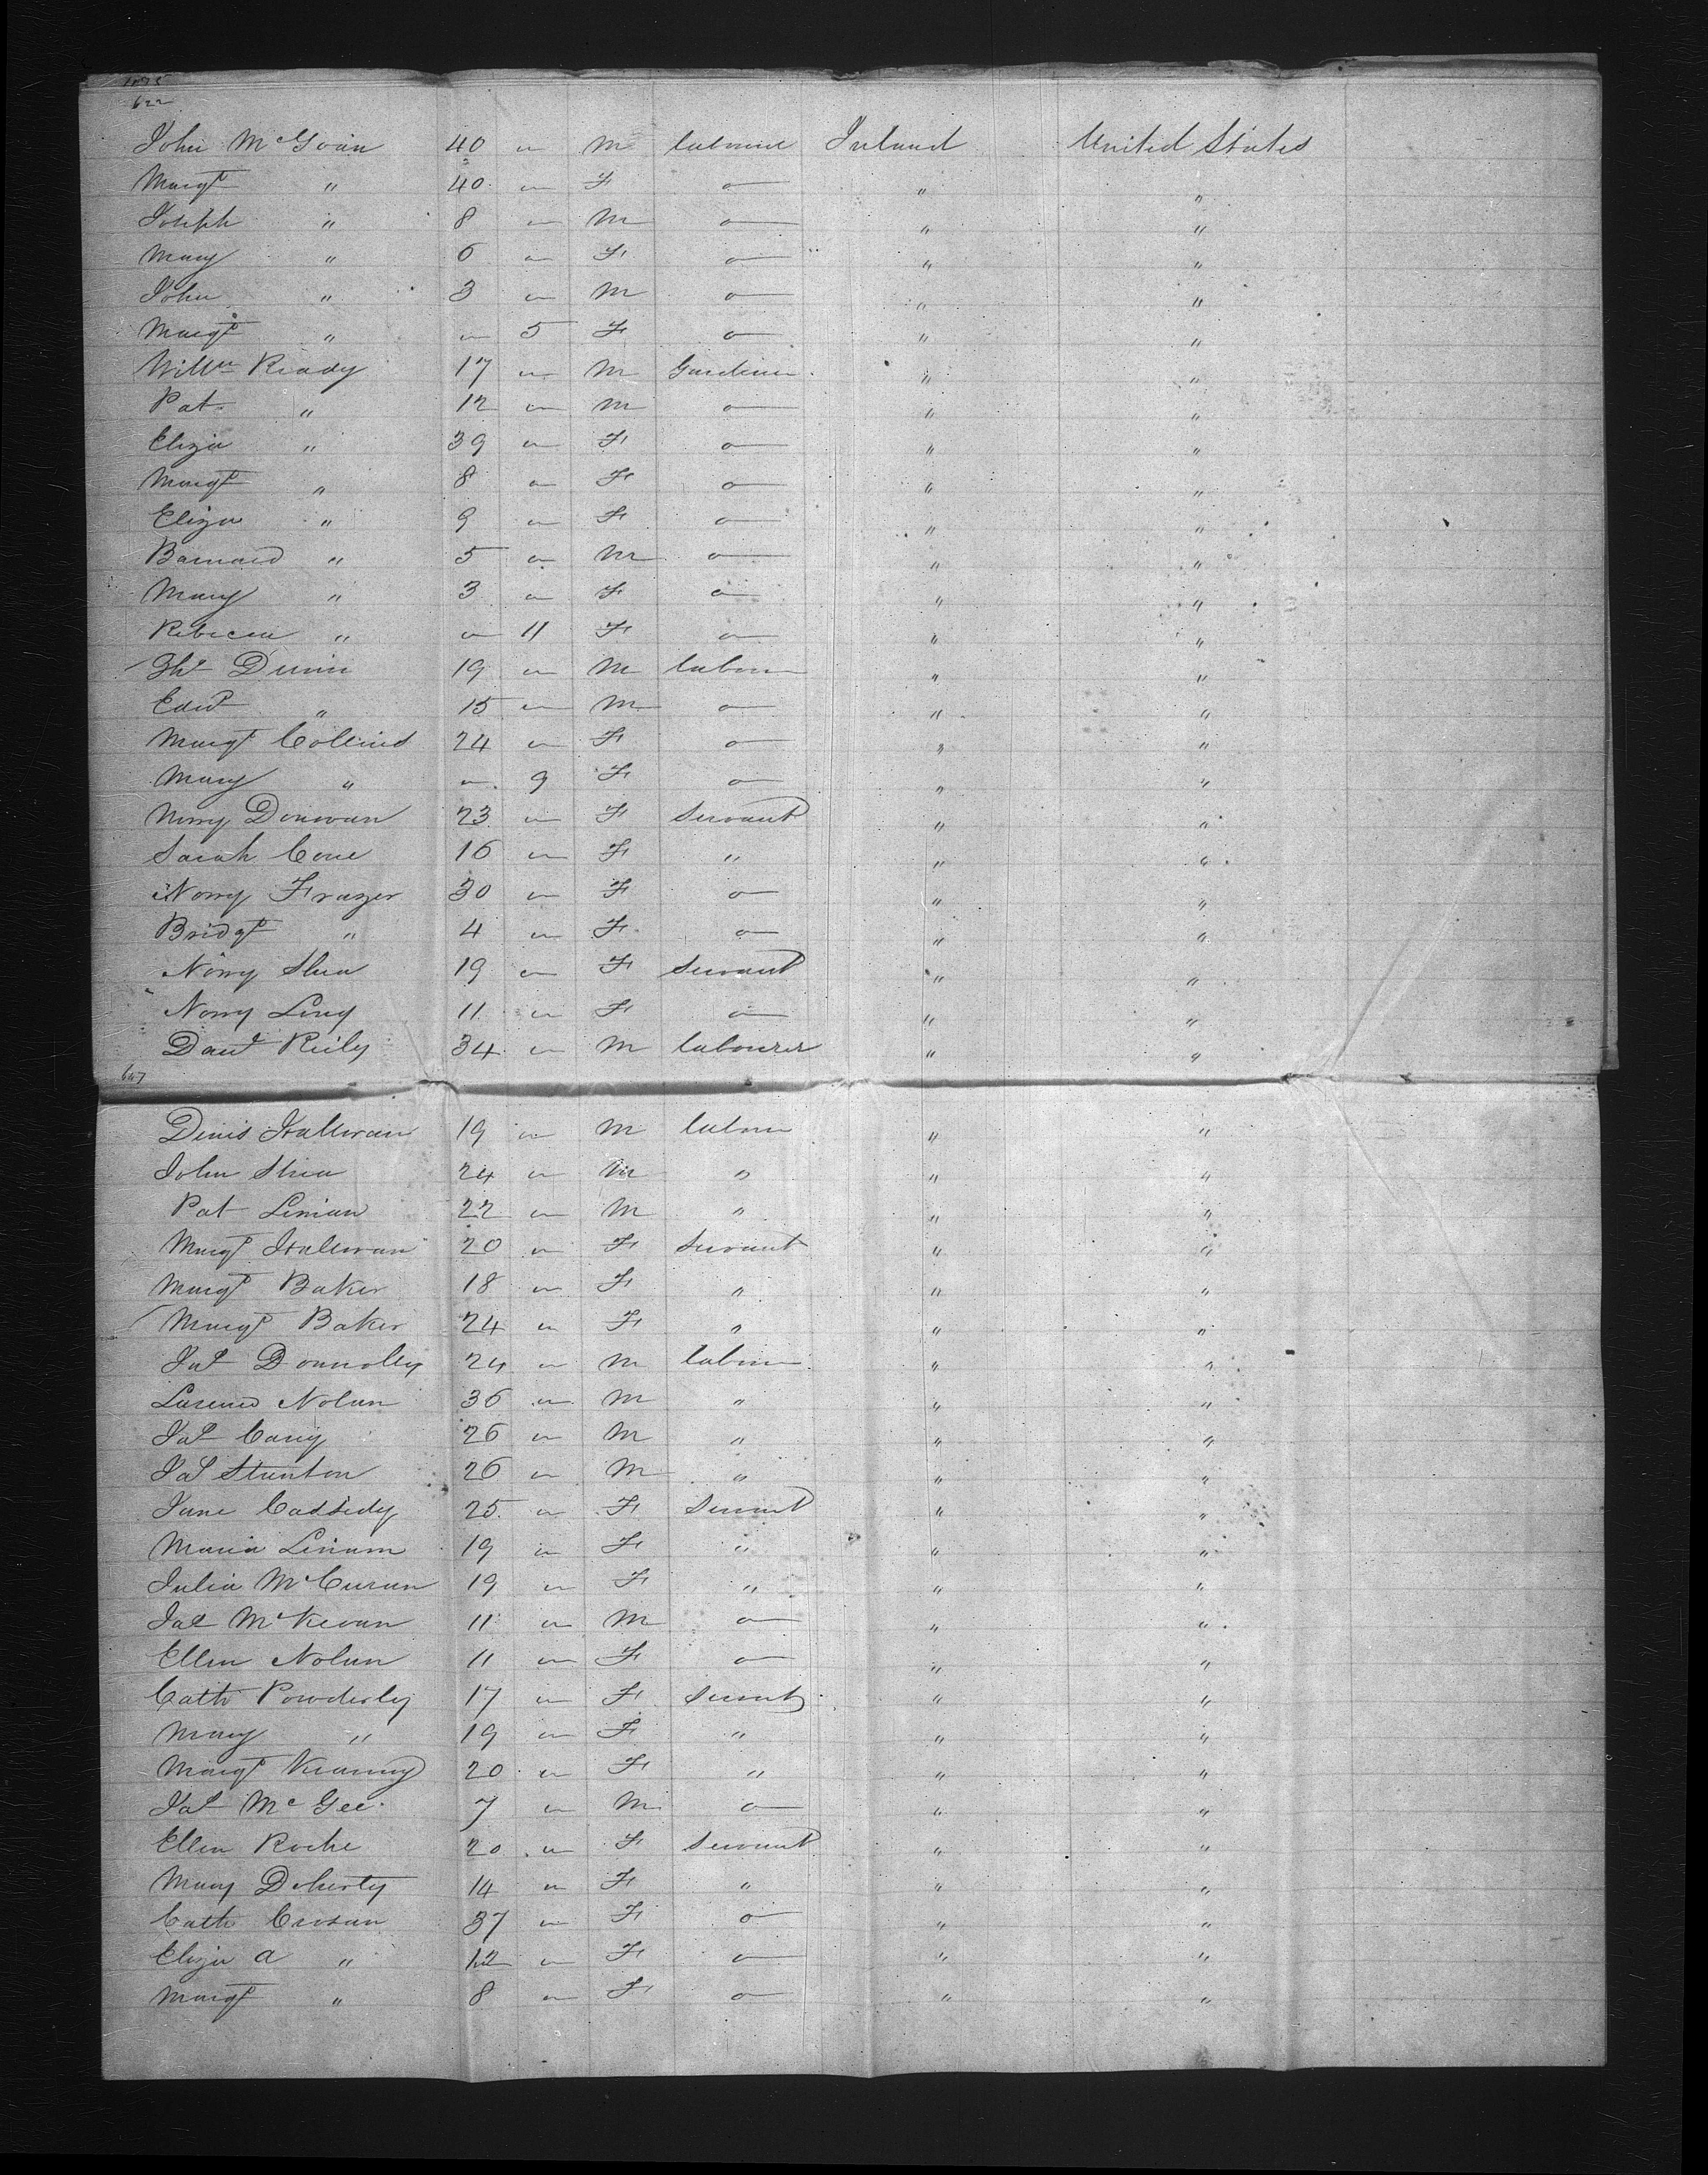 622
John McGoin 40 — M labourer Ireland United States
Margt " 40 — F — " "
Joseph " 8 — M — " "
Mary " 6 — F — " "
John " 3 — M — " "
Margt " — 5 F — " "
Willm Ready 17 — M Gardener " "
Pat " 12 — M — " "
Eliza " 39 — F — " "
Margt " 8 — F — " "
Eliza " 9 — F — " "
Barnard " 5 — M — " "
Mary " 3 — F — " "
Rebecca " — 11 F — " "
Dunn 19 — M labour " "
Edwd " 15 — M — " "
Margt Collins 24 — F — " "
Mary " — 9 F — " "
Norry Donovan 23 — F Servant " "
Sarah Cone 16 — F " " "
Norry Frazer 30 — F — " "
Bridgt " 4 — F — " "
Norry Shea 19 — F Servant " "
Norry Lucy 11 — F — " "
Danl Reily 34 — M labourer " "
647
Denis Halloran 19 — M labour " "
John Shea 24 — M " " "
Pat Linian 22 — M " " "
Margt Halloran 20 — F Servant " "
Margt Baker 18 — F " " "
Margt Baker 24 — F " " "
Jas Donnolly 24 — M labour " "
Nolan 36 — M " " "
Jas Carry 26 — M " " "
Jas Stanton 26 — M " " "
Jane Cassidy 25 — F Servant " "
Maria Linam 19 — F " " "
Julia McCuran 19 — F " " "
Jas McKevan 11 — M — " "
Ellen Nolan 11 — F — " "
Cath Powderly 17 — F Servant " "
Mary " 19 — F " " "
Margt Kearny 20 — F " " "
Jas McGee 7 — M — " "
Ellen Roche 20 — F Servant " "
Mary Doherty 14 — F " " "
Cath Crosan 37 — F — " "
Eliza A " 12 — F — " "
Margt " 8 — F — " "